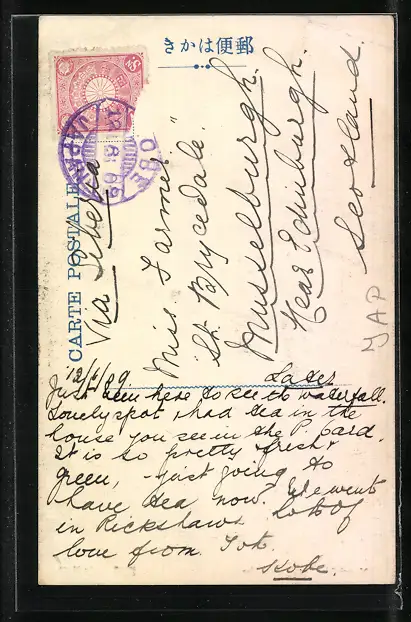 きかは便郵
CARTE POSTALE
Via Siberia
Miss Farmer
"St. Brycedale."
Musselburgh.
Near Edinburgh.
Scotland.
JAP
12/6/09
Later
Just been here to see the waterfall.
Lovely spot, had tea in the
house you see in the P. Card.
It is so pretty & fresh &
green, - just going to
have tea now. We went
in Rickshaws Lots of
love from
Kobe.